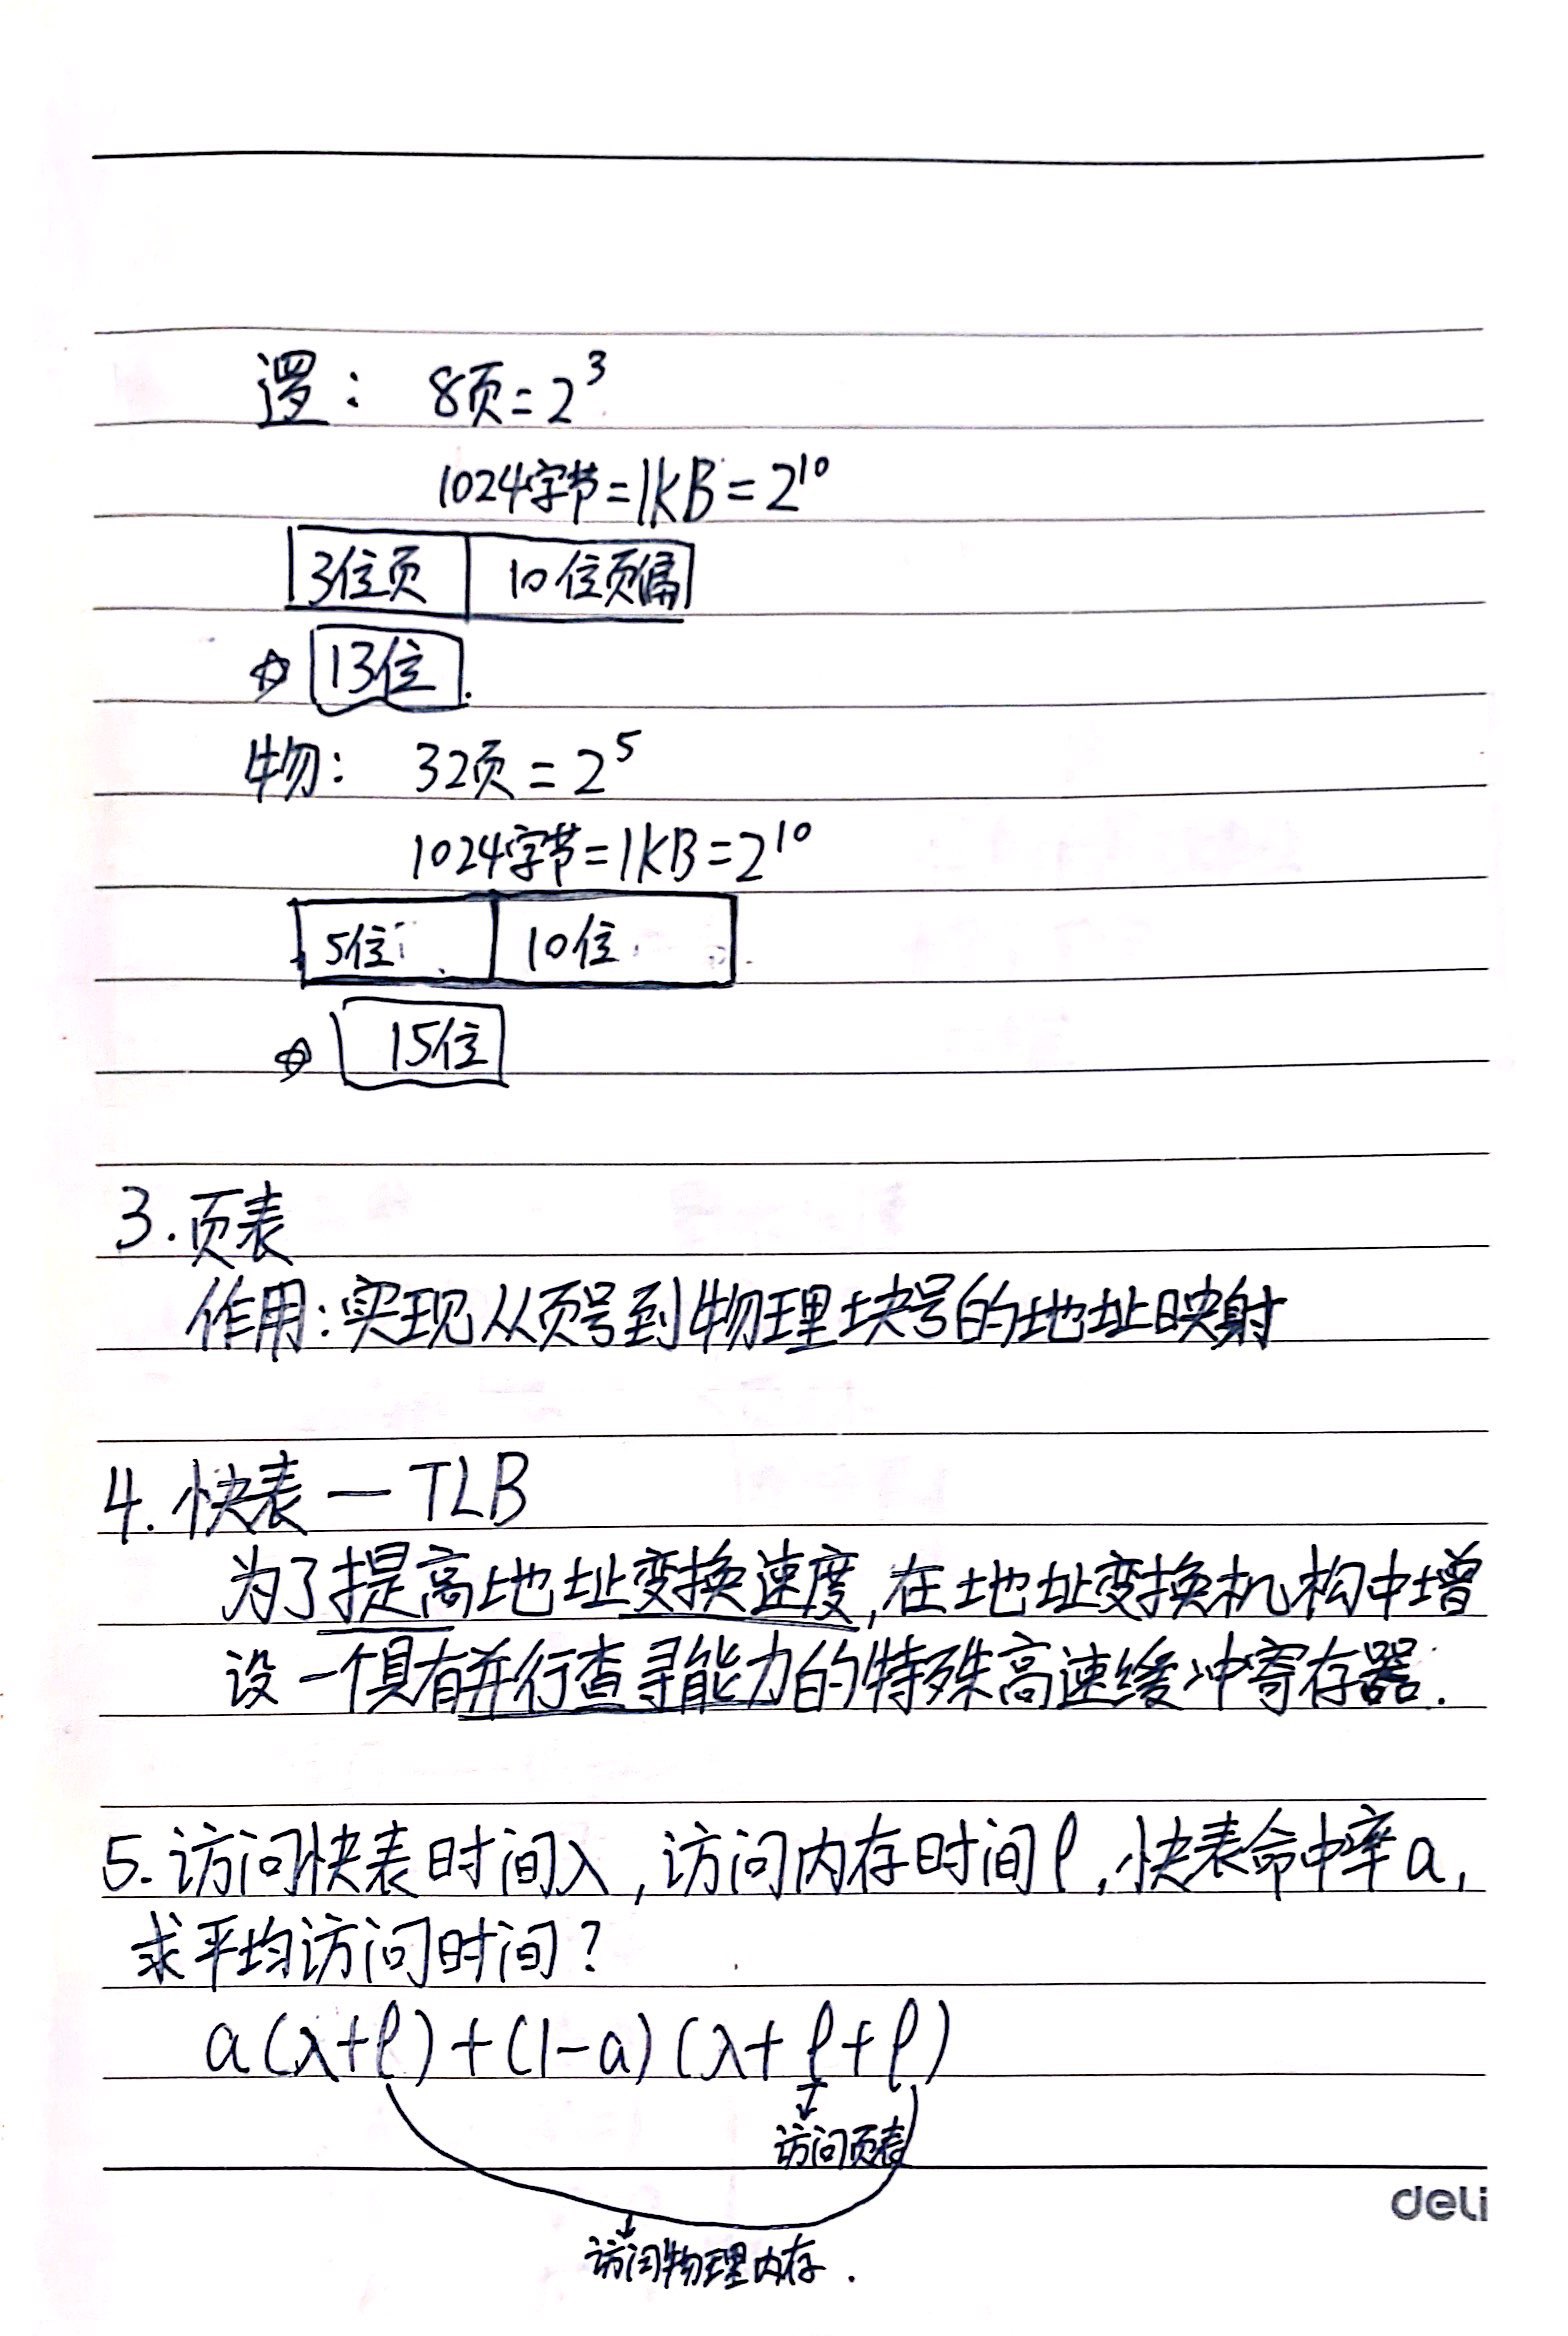 逻： 8页=2³
1024字节=1KB=2¹⁰
3位页 10位页偏
13位.
物： 32页=2⁵
1024字节=1KB=2¹⁰
5位 10位
15位
3.页表
作用:实现从页号到物理块号的地址映射
4.快表—TLB
为了提高地址变换速度,在地址变换机构中增
设一个具有并行查寻能力的特殊高速缓冲寄存器.
5.访问快表时间λ,访问内存时间ℓ,快表命中率a,
求平均访问时间?
a(λ+ℓ)+(1-a)(λ+ℓ+ℓ)
访问页表
deli
访问物理内存.